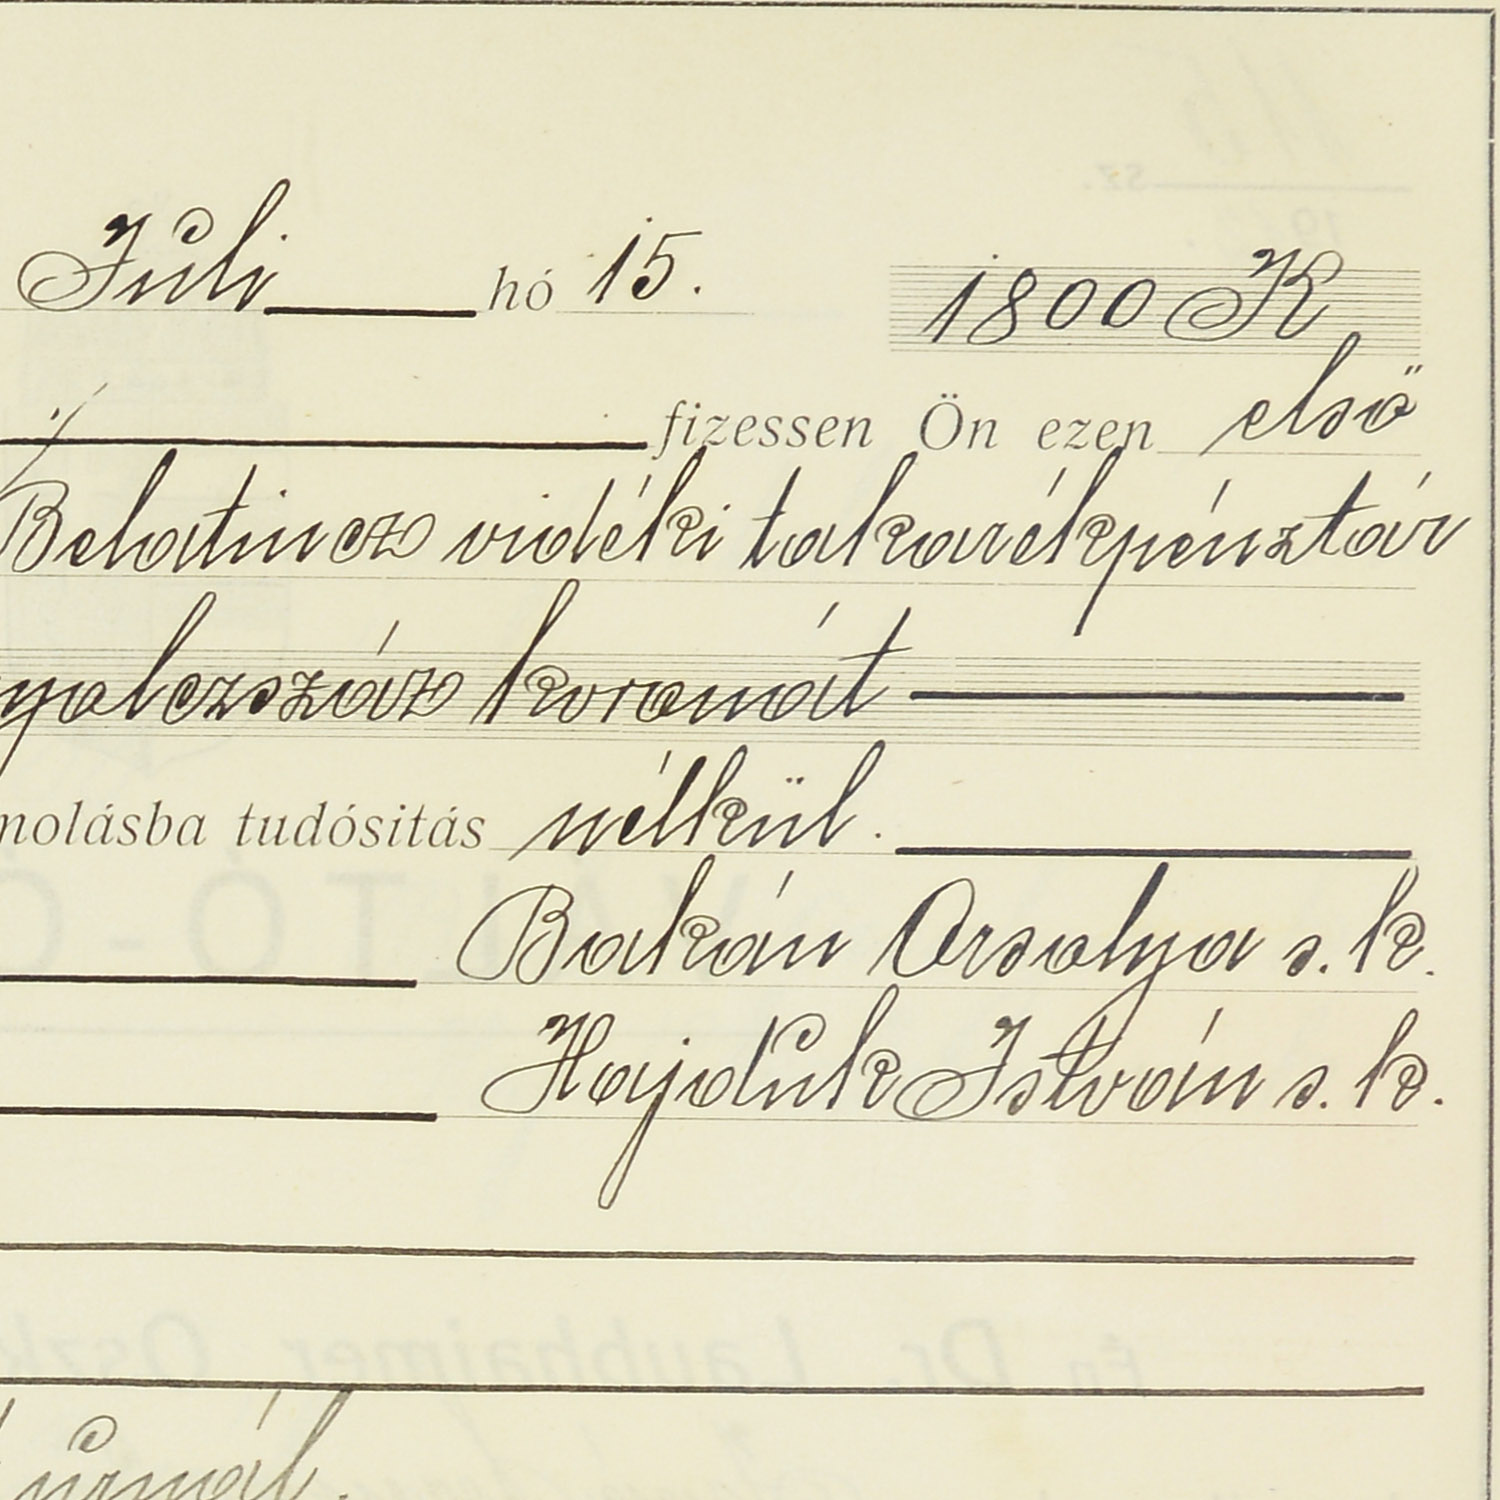 Juli hó 15. 1800 K
fizessen Ön ezen első
Belatincz vidéki takarékpénztár
yolczszáz koronát
molásba tudósitás nélkül.
Bakán Orsolya s. k.
Hajduk István s. k.
urnál.